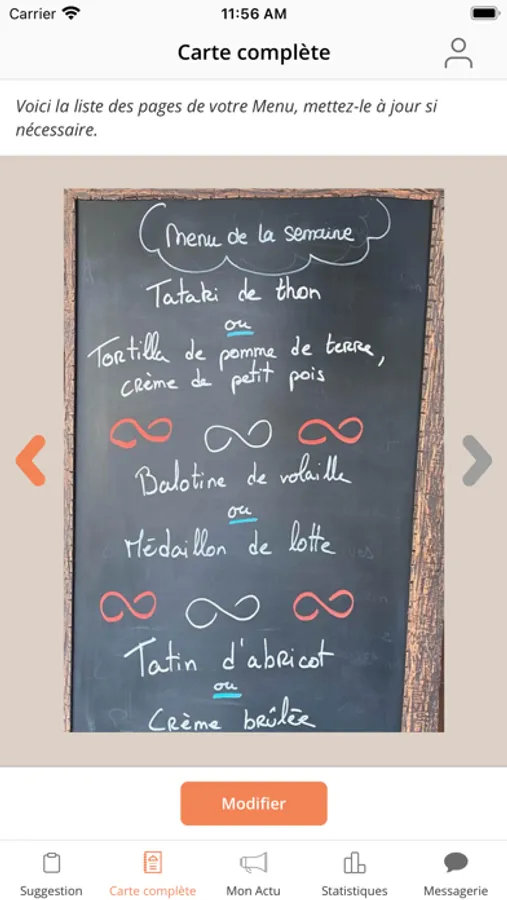 Carrier 11:56 AM
Carte complète
Voici la liste des pages de votre Menu, mettez-le à jour si
nécessaire.
Menu de la semaine
Tataki de thon
ou
Tortilla de pomme de terre,
crème de petit pois
Balotine de volaille
ou
Médaillon de lotte
Tatin d'abricot
ou
Crème brûlée
Modifier
Suggestion Carte complète Mon Actu Statistiques Messagerie